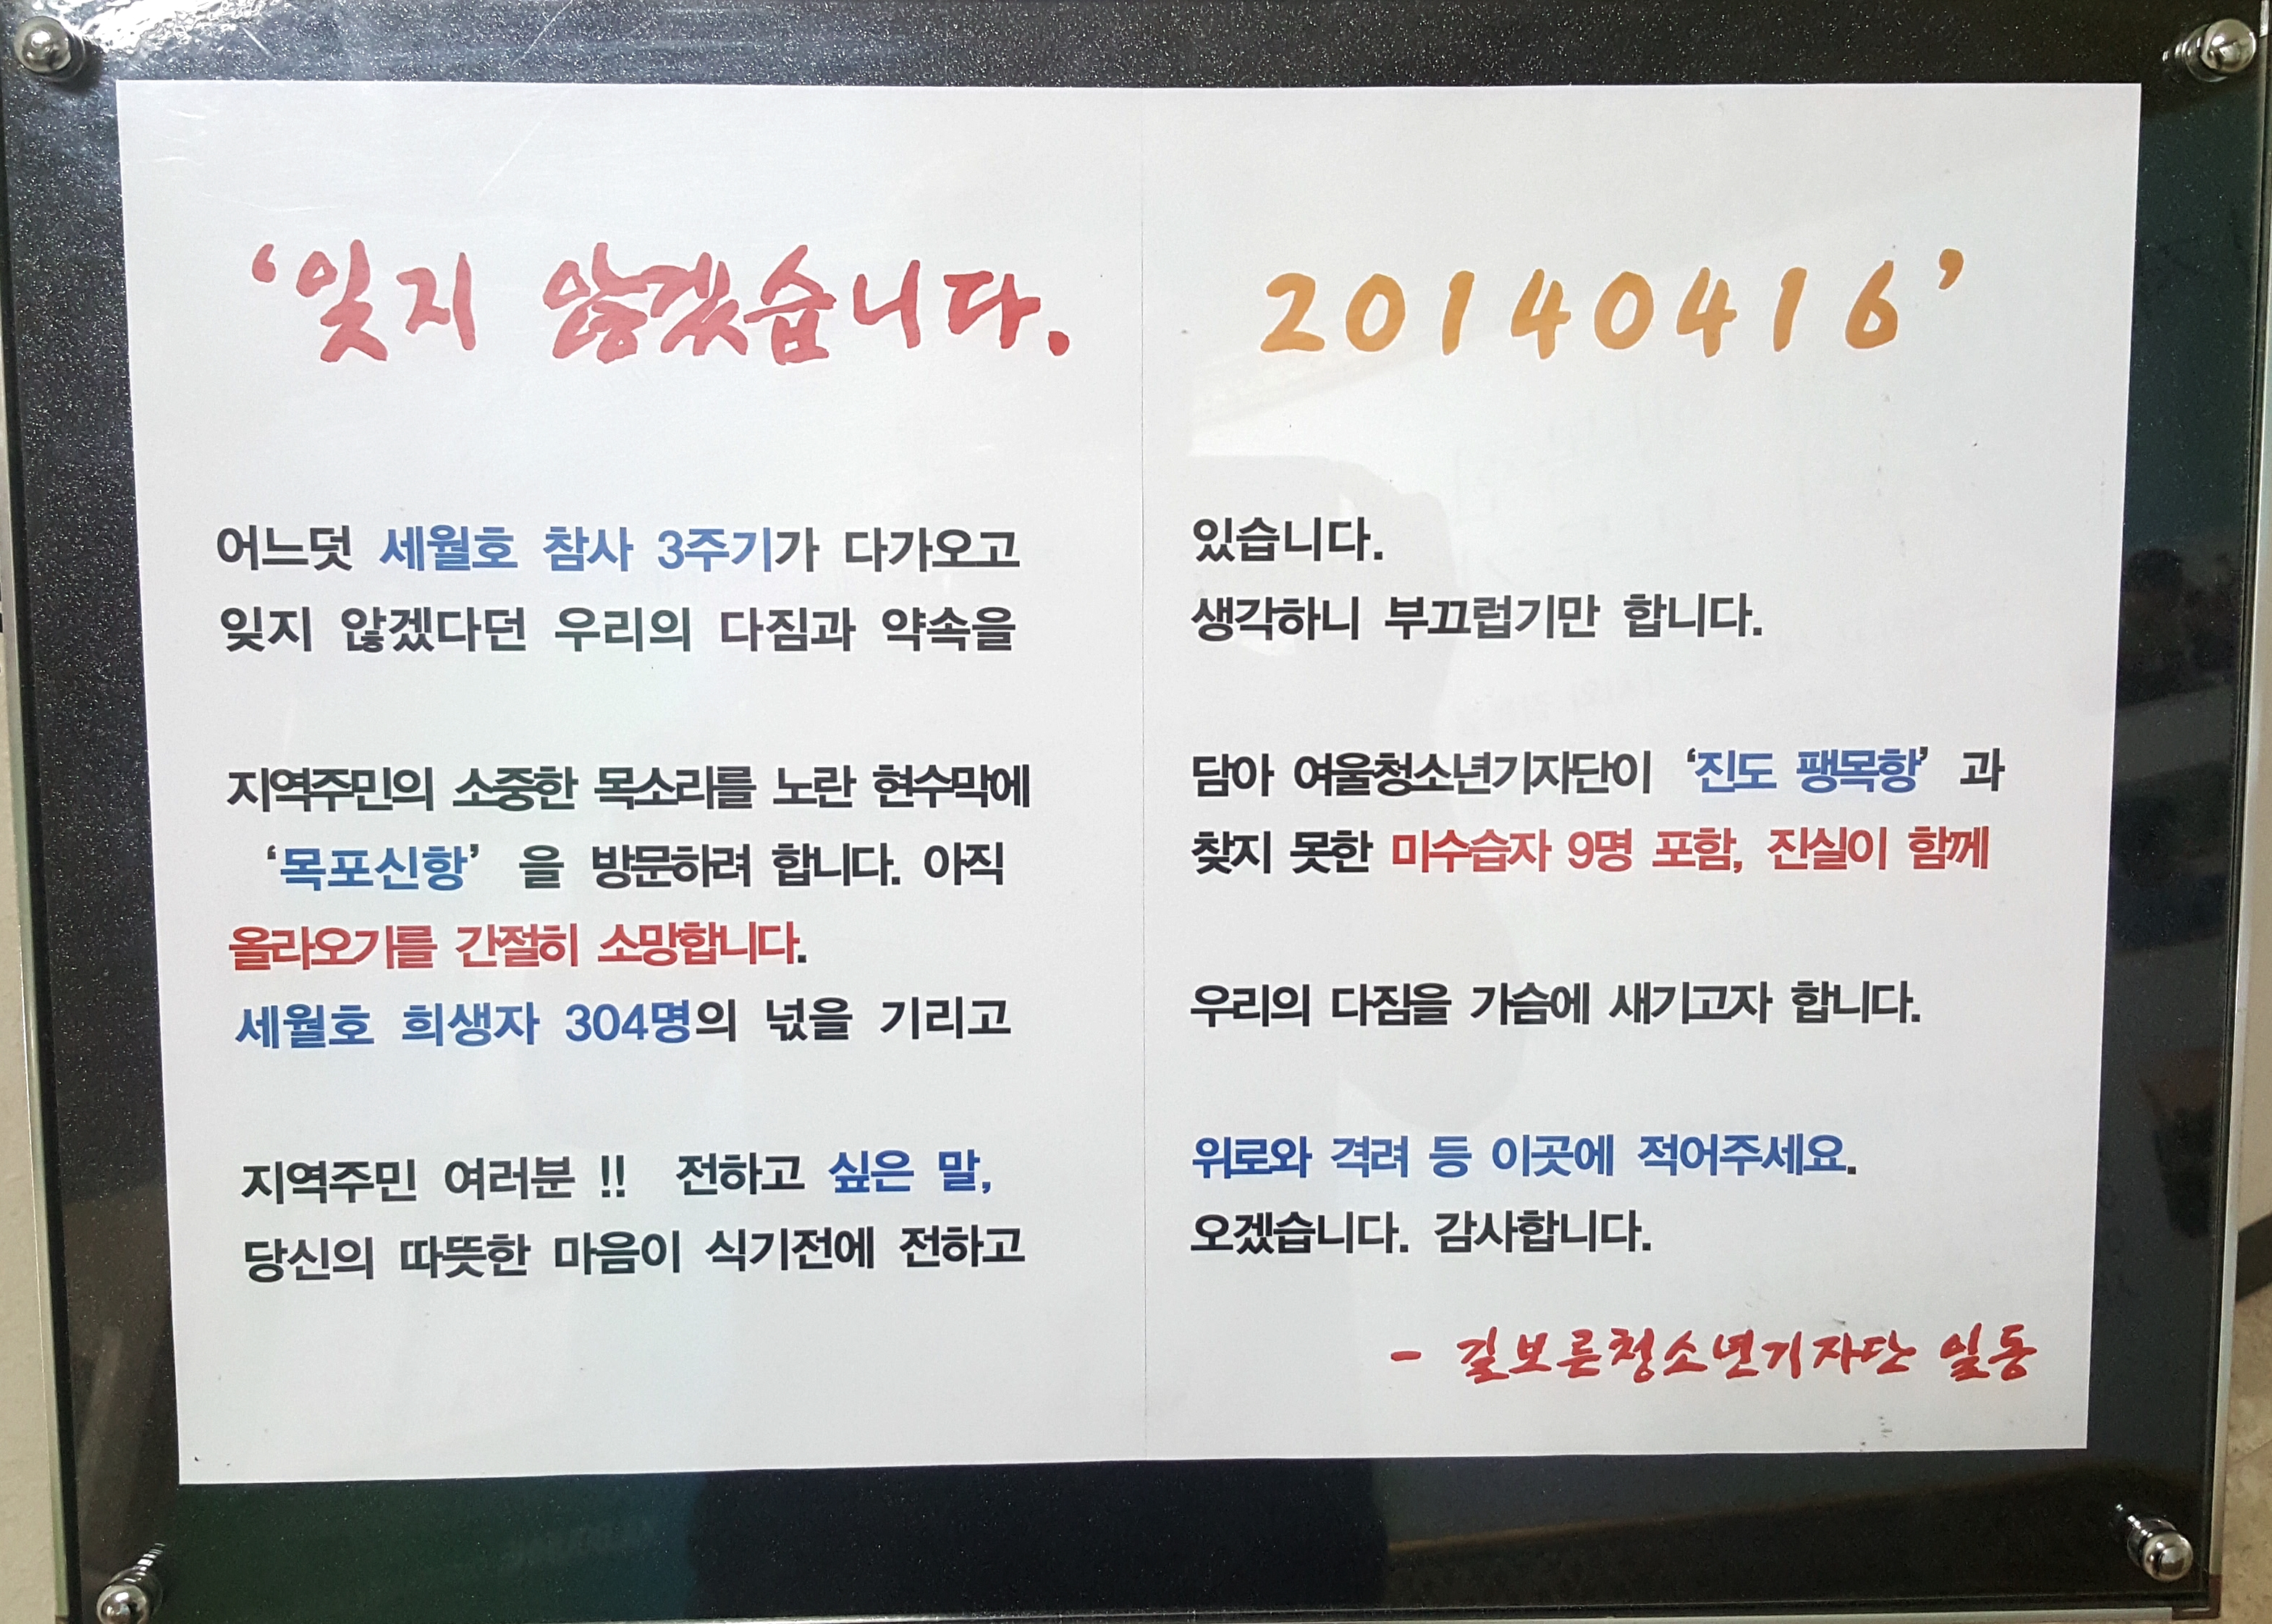 ‘잊지 않겠습니다. 20140416’
어느덧 세월호 참사 3주기가 다가오고 있습니다.
잊지 않겠다던 우리의 다짐과 약속을 생각하니 부끄럽기만 합니다.
지역주민의 소중한 목소리를 노란 현수막에 담아 여울청소년기자단이 ‘진도 팽목항’ 과
‘목포신항’ 을 방문하려 합니다. 아직 찾지 못한 미수습자 9명 포함, 진실이 함께
올라오기를 간절히 소망합니다.
세월호 희생자 304명의 넋을 기리고 우리의 다짐을 가슴에 새기고자 합니다.
지역주민 여러분 !! 전하고 싶은 말, 위로와 격려 등 이곳에 적어주세요.
당신의 따뜻한 마음이 식기전에 전하고 오겠습니다. 감사합니다.
- 길보른청소년기자단 일동